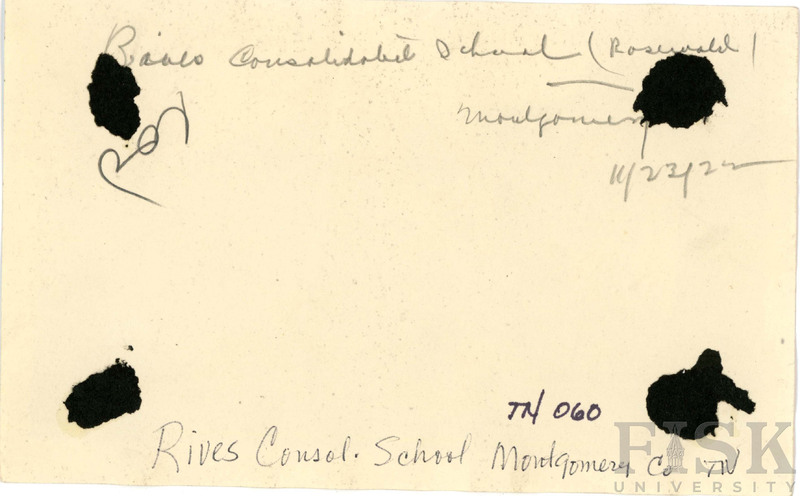 Rives Consolidated School (Rosenwald)
Montgomery
Ros
11/23/22
TN 060
Rives Consol. School Montgomery Co TN
FISK
UNIVERSITY